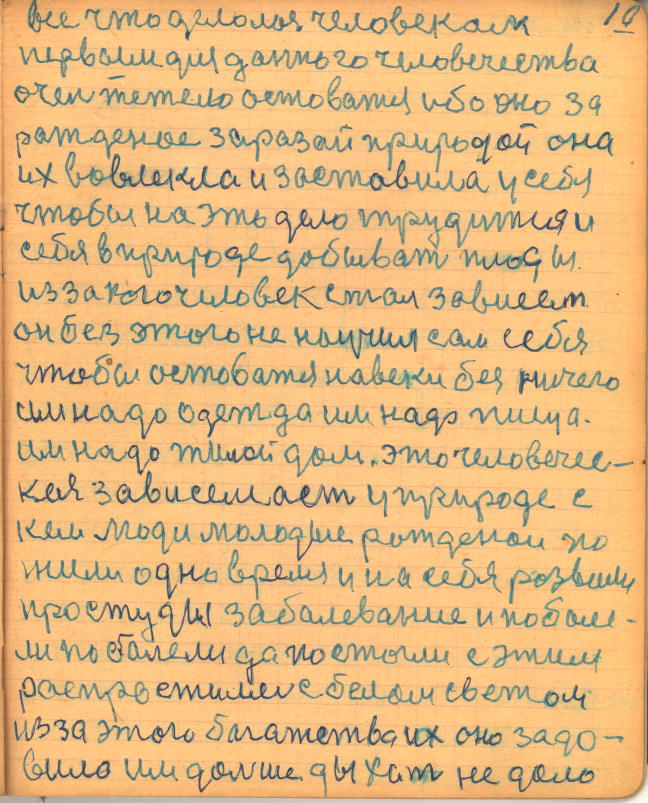 10
все что делолоя человеком
первыим для данного человечества
очен тежело остоватся ибо оно за
рожденое заразай природой она
их вовлекла и заставила у себя
чтобы на это дело трудится и
себя в природе добыват плоды
из за кого человек стал зависем
он без этого не научил сам себя
чтобы остоватся навеки без ничего
им надо одежда им надо пища.
им надо жилой дом. это человечес-
кая зависемаст у природе с
кем люди молодые рожденои по
жили одно время и на себя розвили
простуды забалевание и побале-
ли поболели да постыли с этим
распростилис с белом светом
из за этого багатства их оно задо-
вило им дольше дыхат не дало